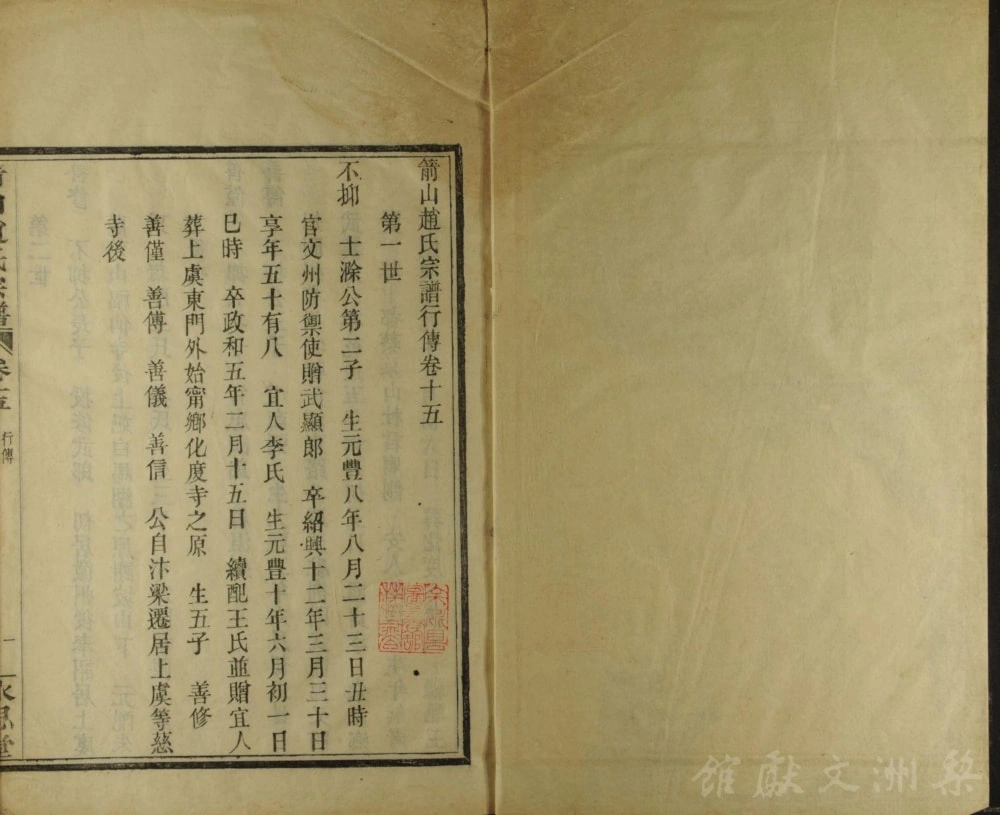 箭山趙氏宗譜行傳卷十五
第一世
不抑 士滁公第二子 生元豐八年八月二十三日丑時
官文州防禦使贈武顯郎 卒紹興十二年三月三十日
享年五十有八 宜人李氏 生元豐十年六月初一日
巳時 卒政和五年二月十五日 續配王氏並贈宜人
葬上虞東門外始甯鄉化度寺之原 生五子 善修
善僅 善傅 善儀 善信 公自汴梁遷居上虞等慈
寺後
箭山趙氏宗譜 卷十五 行傳 一 永思堂
梨洲文獻館